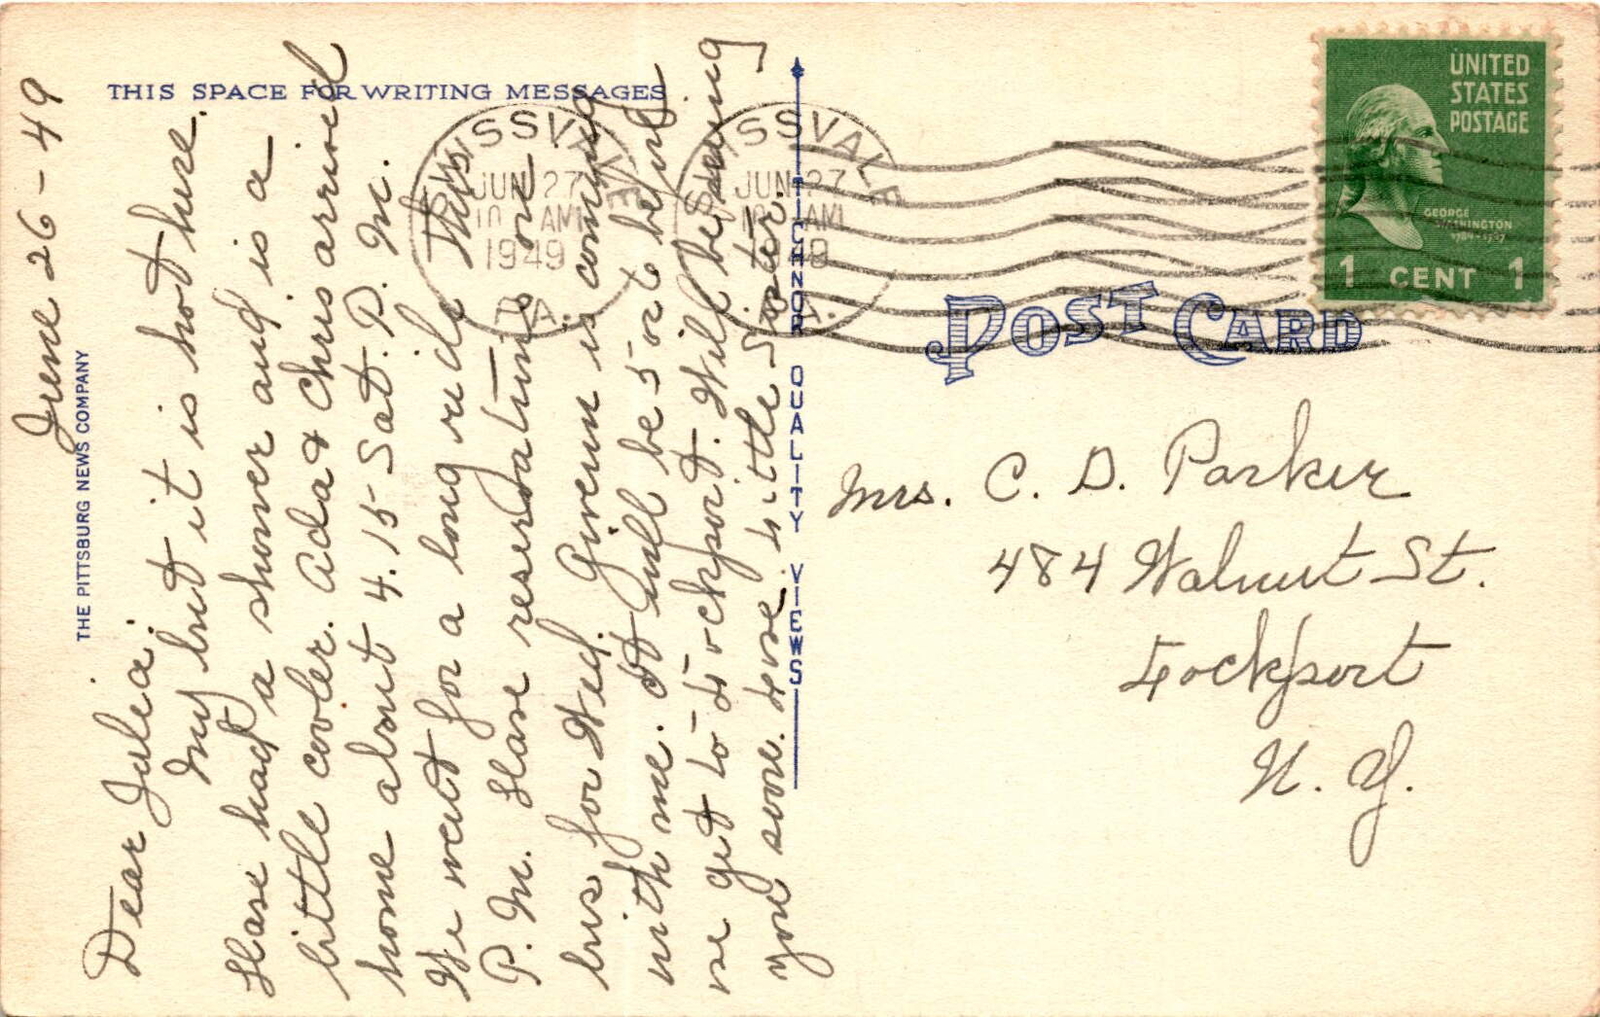 THIS SPACE FOR WRITING MESSAGES
THE PITTSBURG NEWS COMPANY
June 26-49
Dear Julia:
My but it is hot here.
Have had a shower and is a
little cooler. Ada & Chris arrived
home about 4.15 Sat. P. M.
We went for a long ride this
P. M. Have reservations on
bus for Wed. Givenn is coming
with me. It will be 5 or 6 before
we get to Lockport. Will be seeing
you soon. Love, Little Sister.
SWISSVALE
JUN 27
10 AM
1949
PA.
SWISSVALE
JUN 27
10 AM
1949
PA.
TICHNOR QUALITY VIEWS
UNITED
STATES
POSTAGE
GEORGE
WASHINGTON
1789-1797
1 CENT 1
POST CARD
Mrs. C. D. Parker
484 Walnut St.
Lockport
N. Y.